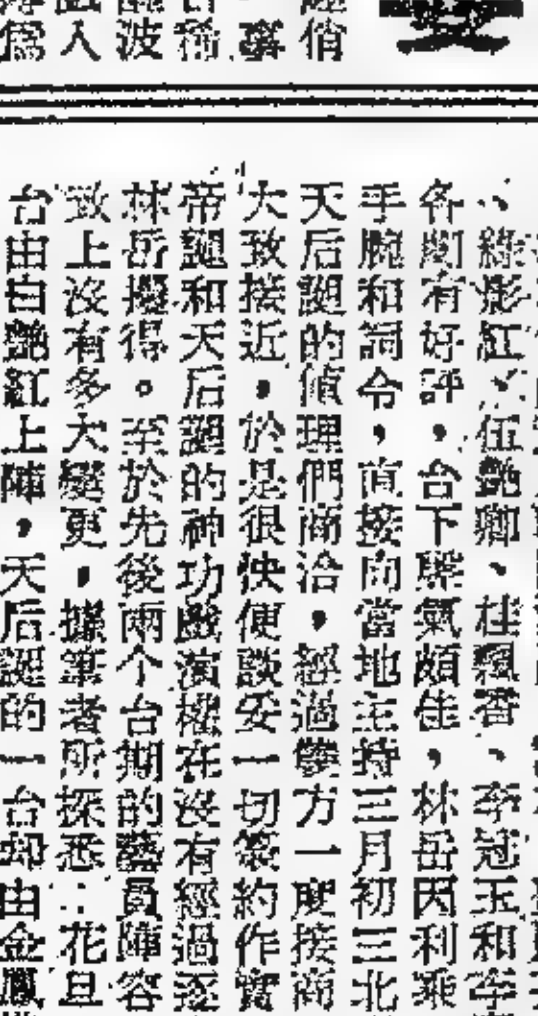 俏
事
稀
波
人
爲
、綠影紅、伍艷卿、桂飄香、李冠玉和李
各劇有好評，台下聚氣頗佳，林岳因利乘
手腕和詞令，直接向當地主持三月初三北
天后誕的值理們商洽，經過雙方一度接商
大致接近，於是很快便談妥一切簽約作實
帝誕和天后誕的神功戲演權在沒有經過逐
林岳攪得。至於先後兩个台期的藝員陣容
致上沒有多大變更，據筆者所探悉：花旦
台由白艷紅上陣，天后誕的一台却由金鳳